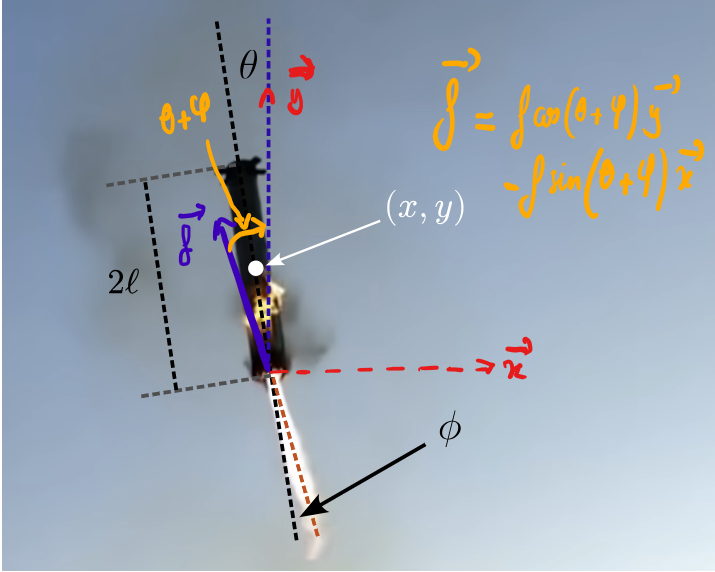 θ
y⃗
θ+φ
f⃗ = f cos(θ+φ) y⃗
- f sin(θ+φ) x⃗
(x, y)
f⃗
2ℓ
x⃗
ϕ